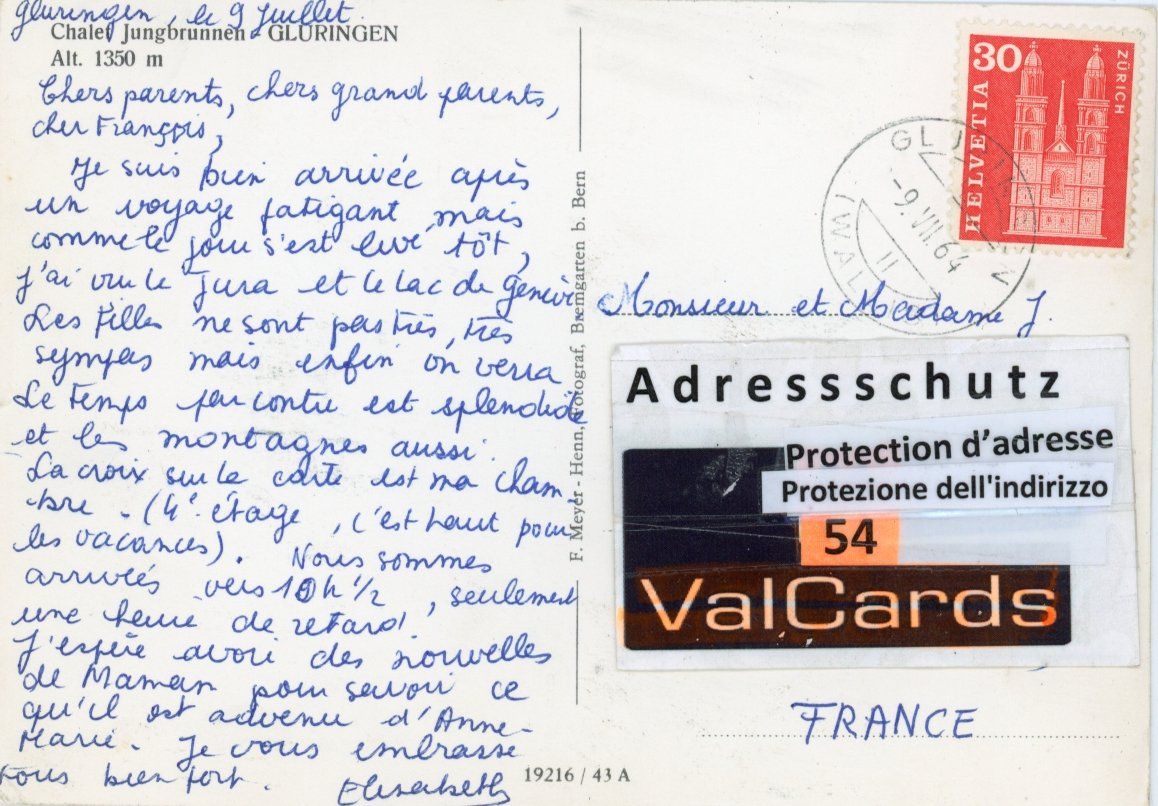 Gluringen, le 9 juillet.
Chalet Jungbrunnen - GLURINGEN
Alt. 1350 m
Chers parents, chers grand parents,
cher François,
Je suis bien arrivée après
un voyage fatigant, mais
comme le jour s'est levé tôt,
j'ai vu le Jura et le lac de Genève
Les filles ne sont pas très, très
sympas mais enfin on verra
Le temps par contre est splendide
et les montagnes aussi.
La croix sur la carte est ma cham
bre. (4e étage, c'est haut pour
les vacances). Nous sommes
arrivées vers 10h 1/2, seulement
une heure de retard.
J'espère avoir des nouvelles
de Maman pour savoir ce
qu'il est advenu d'Anne-
Marie. Je vous embrasse
tous bien fort. Elisabeth
19216 / 43 A
F. Meyer - Henn, Fotograf, Bremgarten b. Bern
30
ZÜRICH
HELVETIA
-9.VII.64
11
Monsieur et Madame J.
Adressschutz
Protection d'adresse
Protezione dell'indirizzo
54
ValCards
FRANCE